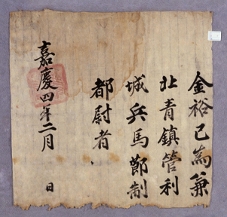 金裕已爲兼
北青鎮管利
城兵馬節制
都尉者
嘉慶四年二月 日